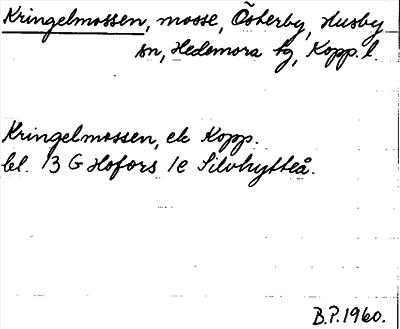 Kringelmossen, mosse, Österby, Husby
sn, Hedemora tg, Kopp. l.
Kringelmossen, ek Kopp.
bl. 13 G Hofors 1e Silvhytteå.
B.P. 1960.